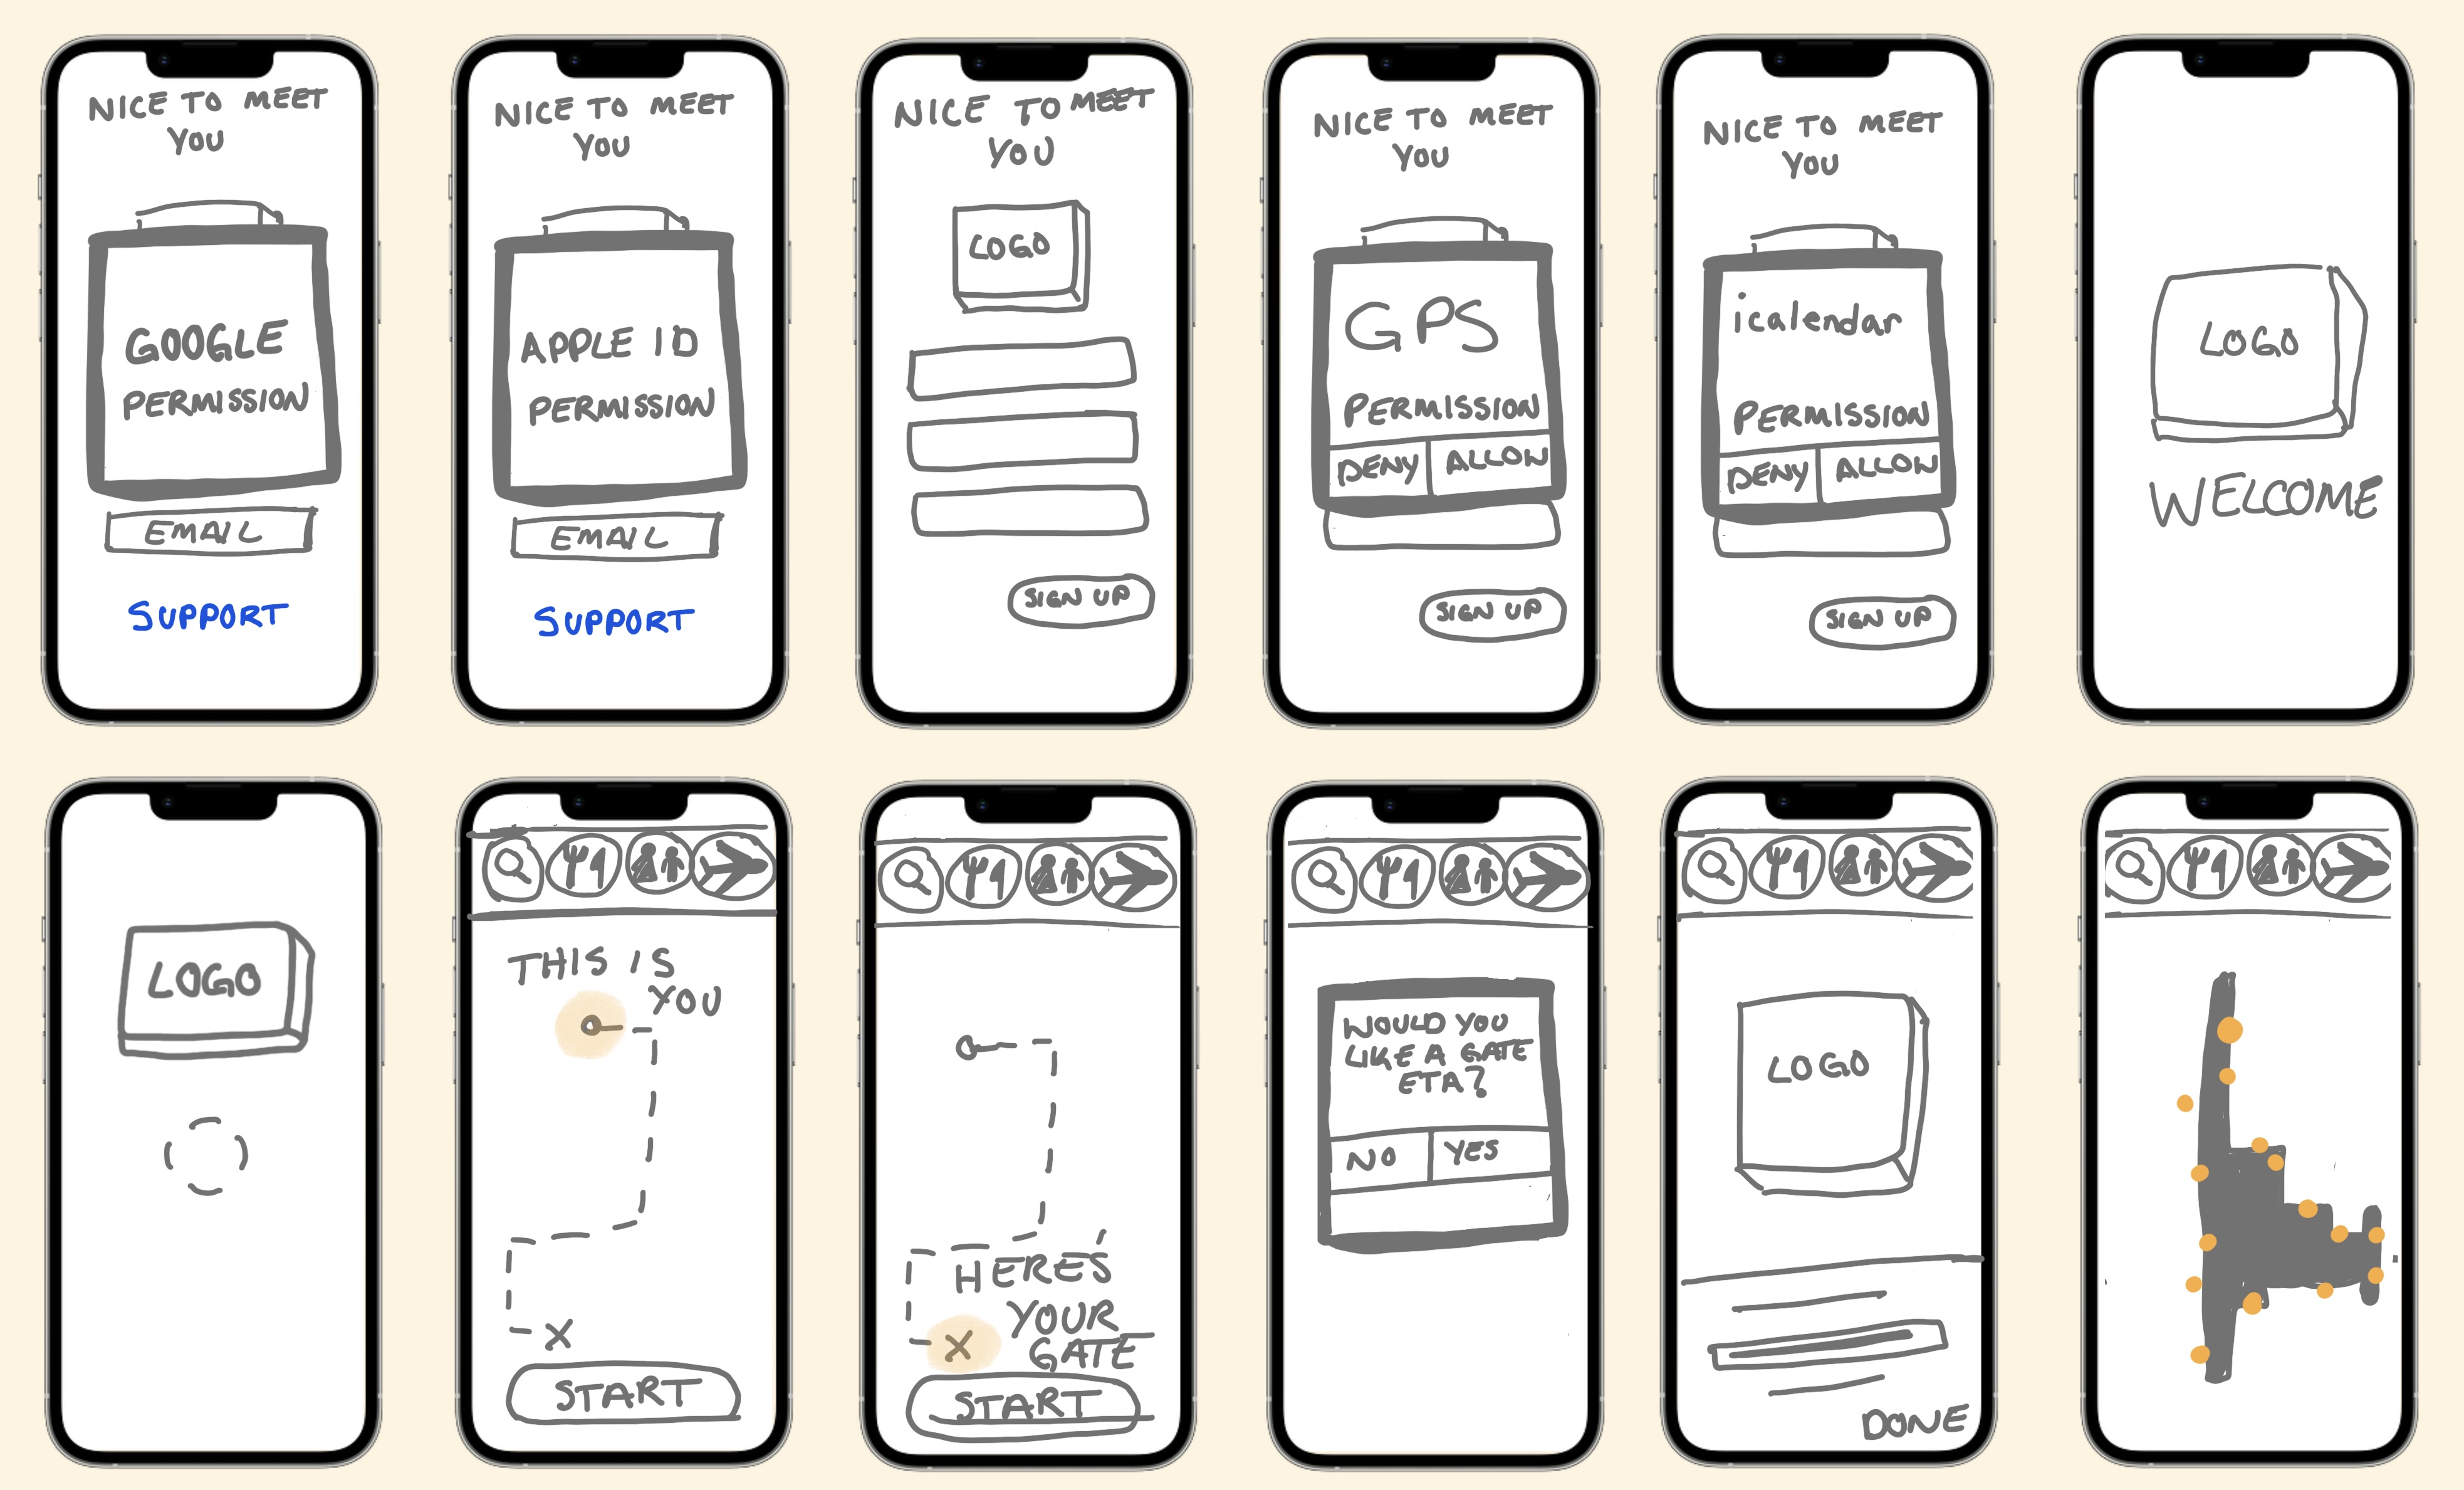 NICE TO MEET
YOU
GOOGLE
PERMISSION
EMAIL
SUPPORT
NICE TO MEET
YOU
APPLE ID
PERMISSION
EMAIL
SUPPORT
NICE TO MEET
YOU
LOGO
SIGN UP
NICE TO MEET
YOU
GPS
PERMISSION
DENY ALLOW
SIGN UP
NICE TO MEET
YOU
icalendar
PERMISSION
DENY ALLOW
SIGN UP
LOGO
WELCOME
LOGO
THIS IS
YOU
X
START
HERE'S
YOUR
X GATE
START
WOULD YOU
LIKE A GATE
ETA?
NO YES
LOGO
DONE